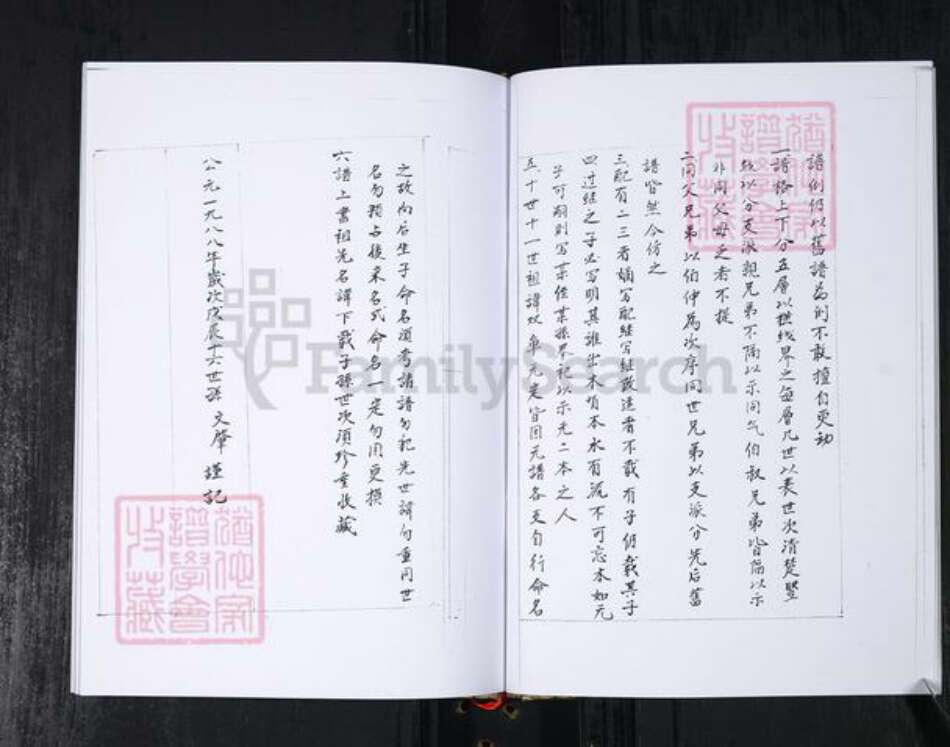 譜例仍以舊譜為則不敢擅自更动
一譜格上下分五層以横线界之每層几世以表世次清楚竪
线以分支派親兄弟不隔以示同气伯叔兄弟皆隔以示
非同父母之者不提
二同父兄弟以伯仲為次序同世兄弟以支派分先后舊
譜皆然今仿之
三配有二三者嫡写配继写继改适者不载有子仍载其子
四过继之子必写明其誰出木有本水有流不可忘本如元
子可嗣则写某侄某孫承祀以示无二本之人
五十世十一世祖諱双单元定皆因元譜各支自行命名
之故向后生子命名須考諸譜勿犯先世諱勿重同世
名勿預占後来名式命名一定勿用更換
六譜上書祖先名諱下载子孫世次須珍重收藏
公元一九八八年歲次戊辰十六世孫 文肇 謹記
FamilySearch
猶他家
譜學會
收藏
猶他家
譜學會
收藏